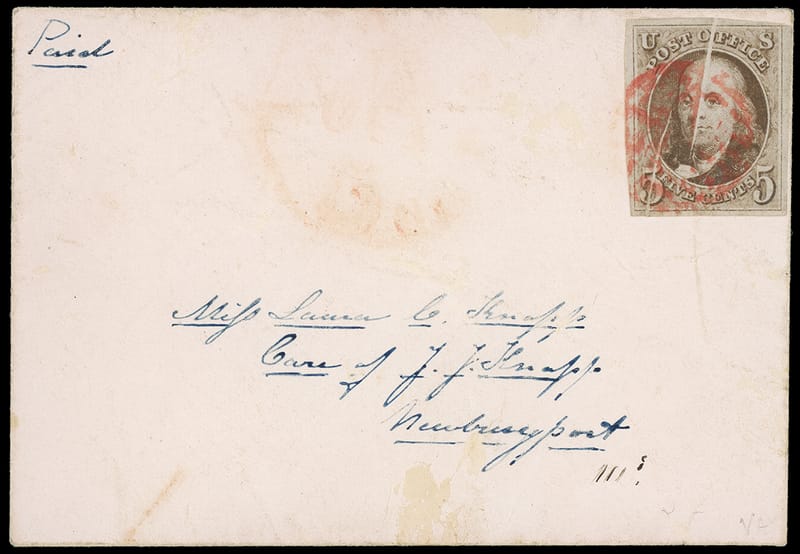 Paid
U S
POST OFFICE
5 FIVE CENTS 5
Miss Laura C. Knapp
Care of J. J. Knapp
Newburyport
Ms.